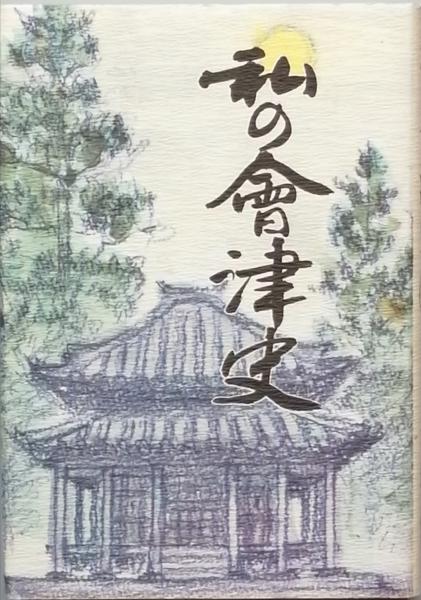 私の會津史